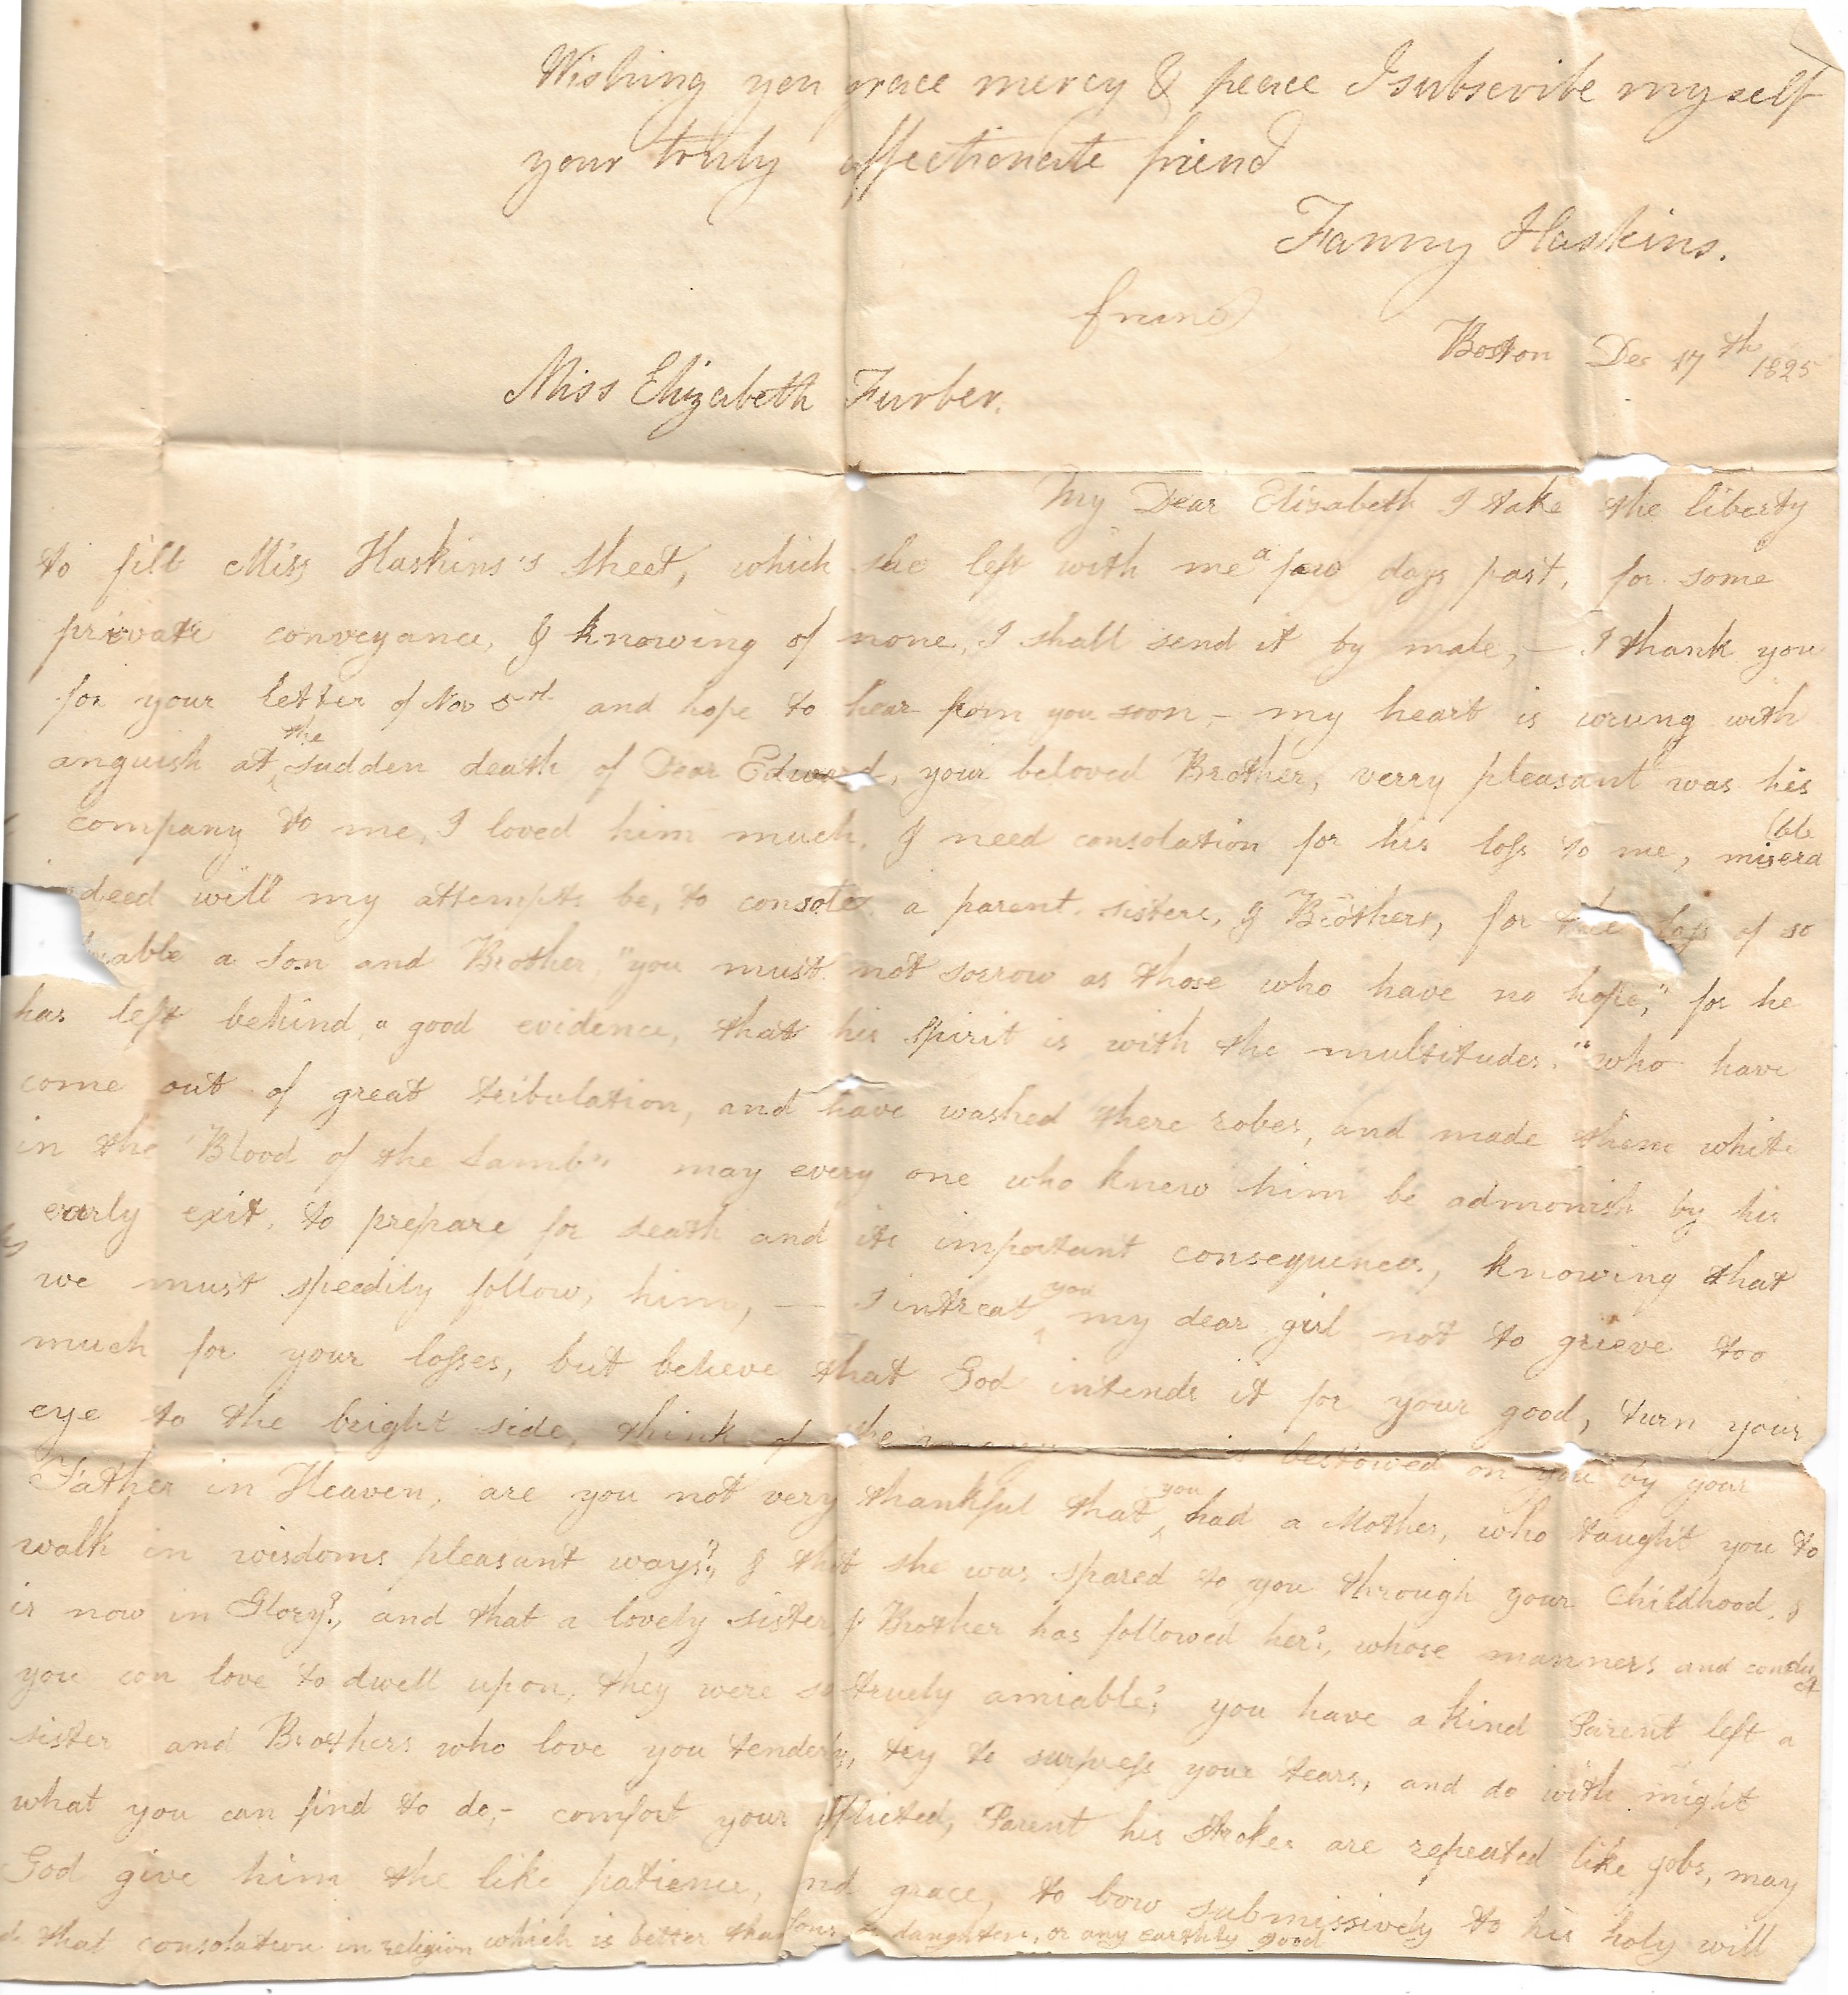 Wishing you grace mercy & peace I subscribe myself
your truly affectionate friend
Fanny Haskins.
friend
Boston Dec 17th 1825
Miss Elizabeth Furber.
My Dear Elizabeth I take the liberty
to fill Miss Haskins's sheet, which she left with me a few days past, for some
private conveyance, & knowing of none, I shall send it by male, — I thank you
for your letter of Nov 5th and hope to hear from you soon, — my heart is wrung with
anguish at the sudden death of Dear Edward, your beloved Brother, verry pleasant was his
company to me, I loved him much, & need consolation for his loss to me, misera
ble
deed will my attempts be, to console a parent, sisters, & Brothers, for the loss of so
able a Son and Brother, "you must not sorrow as those who have no hope," for he
has left behind a good evidence, that his spirit is with the multitudes, "who have
come out of great tribulation, and have washed there robes, and made them white
in the Blood of the Lamb" may every one who knew him be admonish by his
early exit, to prepare for death and its important consequences, knowing that
we must speedily follow, him, — I intreat you my dear girl not to grieve too
much for your losses, but believe that God intends it for your good, turn your
eye to the bright side, think of the bestowed on you by your
Father in Heaven, are you not very thankful that you had a Mother, who taught you to
walk in wisdoms pleasant ways?, & that she was spared to you through your Childhood, &
is now in Glory?, and that a lovely sister & Brother has followed her?, whose manners and conduct
you can love to dwell upon, they were so truely amiable? you have a kind Parent left a
sister and Brothers who love you tenderly, try to surpress your tears, and do with might
what you can find to do, — comfort your afflicted, Parent his strokes are repeated like jobs, may
God give him the like patience, and grace, to bow submissively to his holy will
& that consolation in religion which is better than sons or daughters, or any earthly good